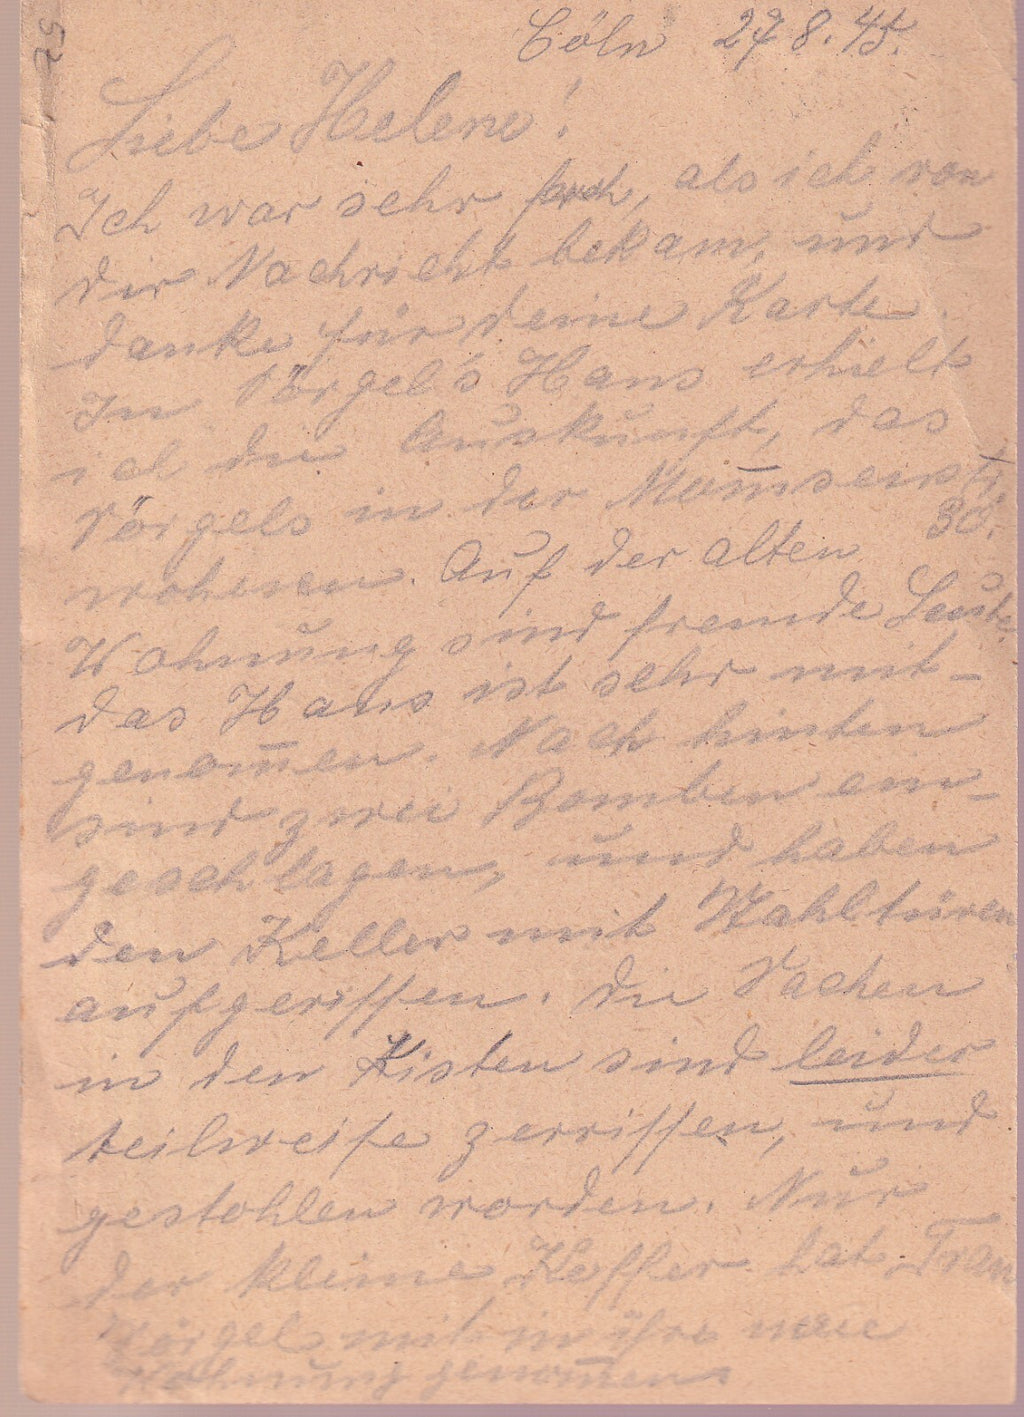 52
Cöln 27 8. 45.
Liebe Helene!
Ich war sehr froh, als ich von
dir Nachricht bekam, und
danke für deine Karte.
In Sörgel's Haus erhielt
ich die Auskunft, das
Sörgels in der Mom̅senstr.
80.
wohenen. Auf der alten
Wohnung sind fremde Leute.
das Haus ist sehr mit-
genom̅en. Nach hinten
sind zwei Bomben ein-
geschlagen, und haben
den Keller mit Stahltüren
aufgerissen. Die Sachen
in den Kisten sind leider
teilweise zerrissen, und
gestohlen worden. Nur
der kleine Koffer hat Frau
Sörgel mit in ihre neue
Wohnung genom̅en.